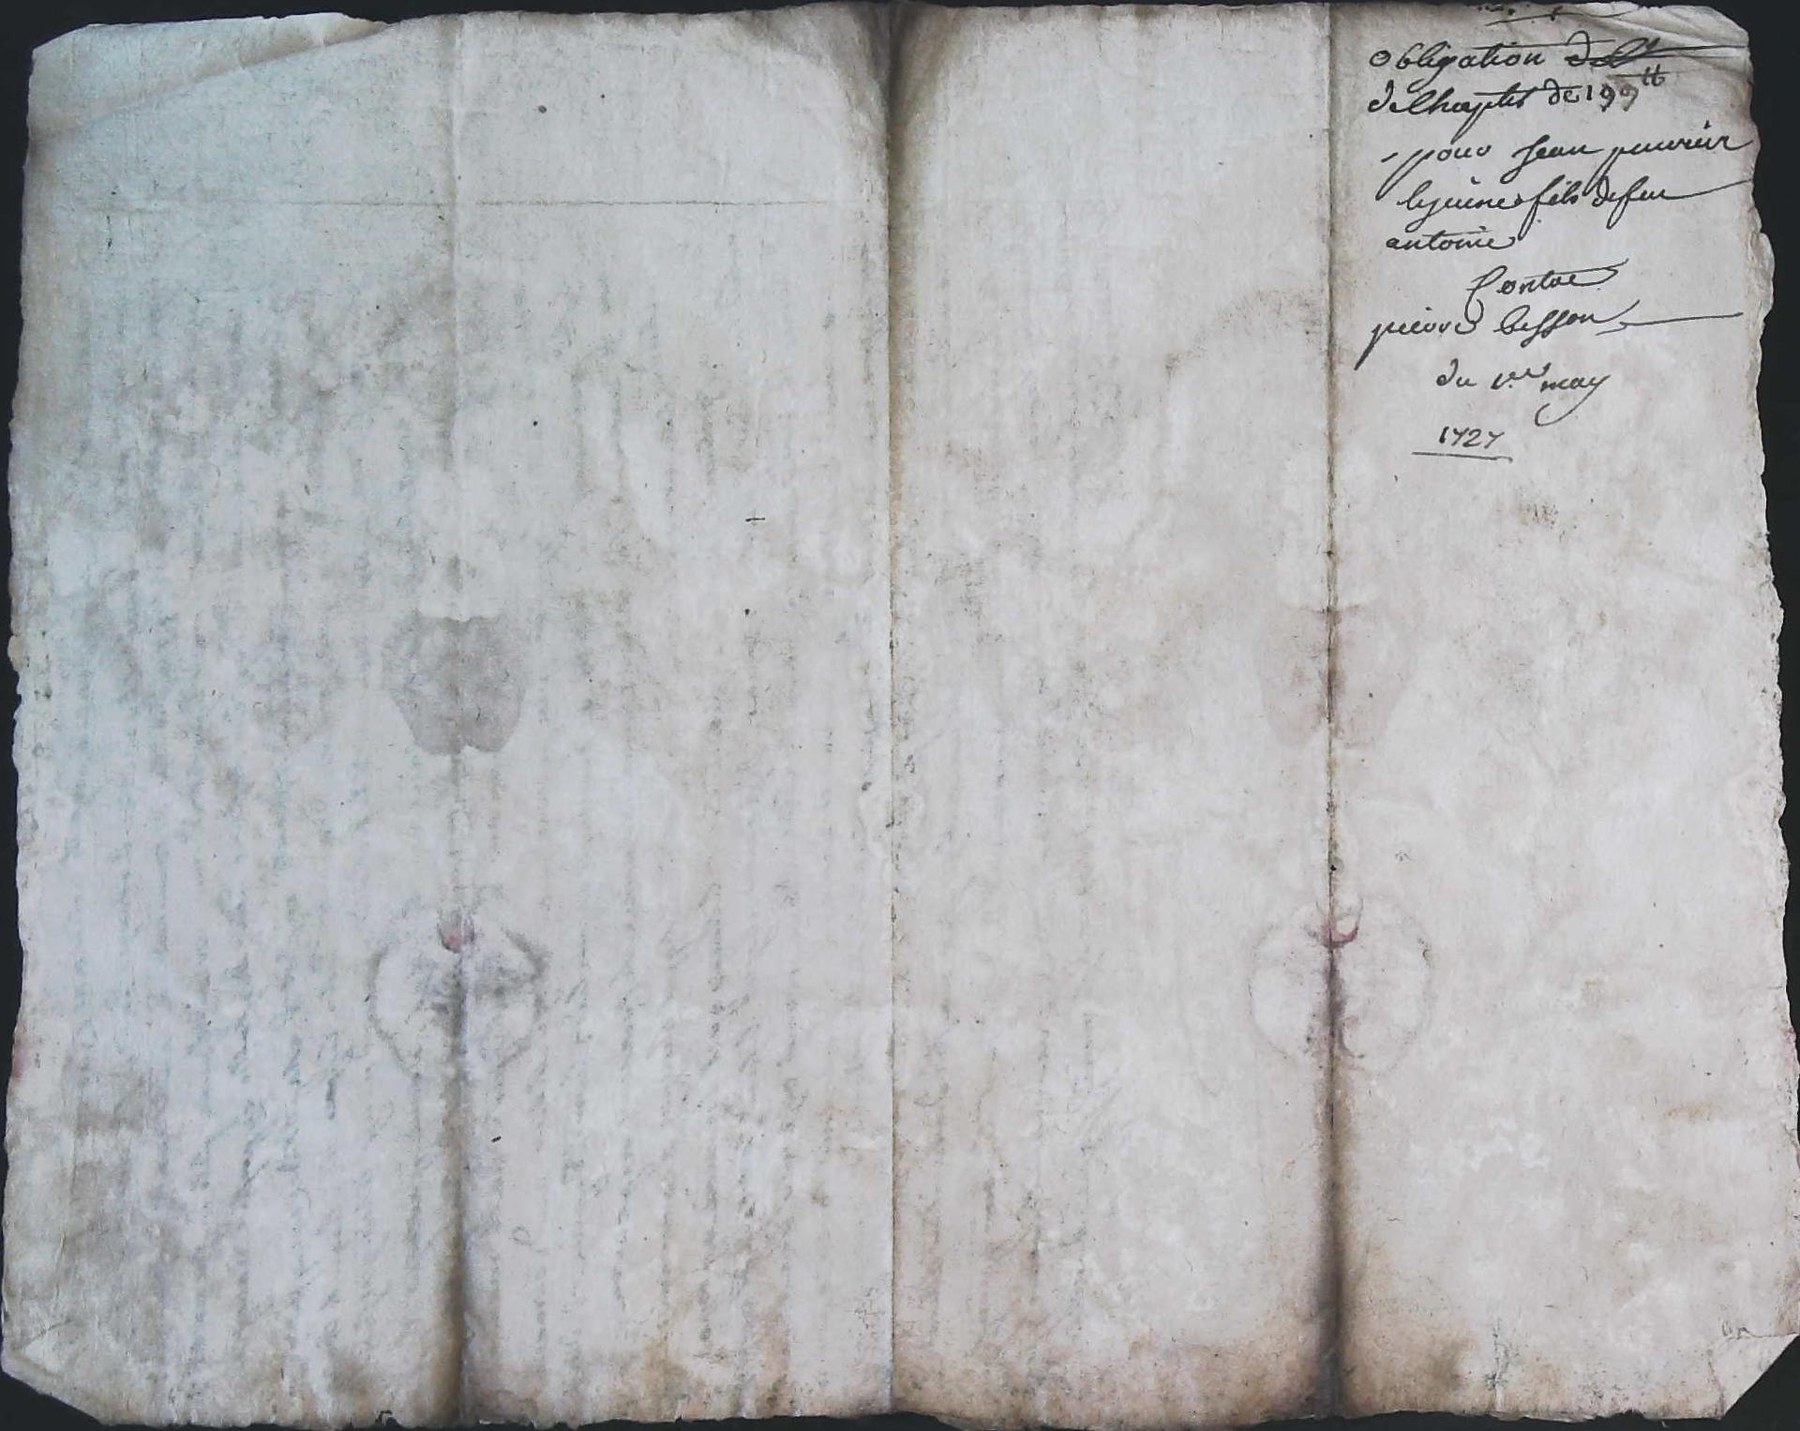 obligation
de Cheptel de 199tt
pour Jean
le jeune fils de feu
antoine
Contre
pierre besson
du 1er may
1727